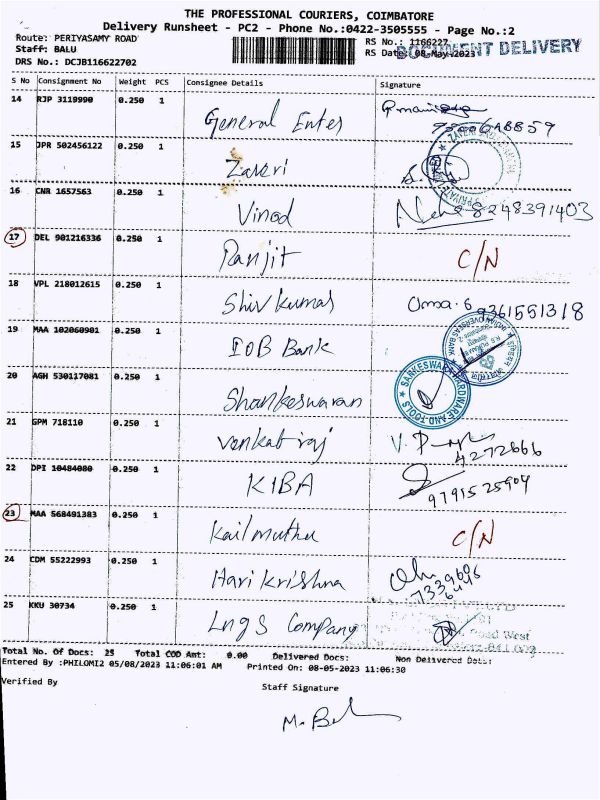 THE PROFESSIONAL COURIERS, COIMBATORE
Delivery Runsheet - PC2 - Phone No.:0422-3505555 - Page No.:2
Route: PERIYASAMY ROAD RS No.: 1166227
DOCUMENT DELIVERY
Staff: BALU RS Date: 08-May-2023
DRS No.: DCJB116622702
S No Consignment No Weight PCS Consignee Details Signature
14 RJP 3119990 0.250 1 General Enter
15 JPR 502456122 0.250 1 Zavri
16 CNR 1657563 0.250 1 Vinod 8248391403
17 DEL 901216336 0.250 1 Ranjit C/N
18 VPL 218012615 0.250 1 Shiv kumar Uma. G 9361551318
19 MAA 102060901 0.250 1 IOB Bank
INDIAN OVERSEAS BANK
20 AGH 530117081 0.250 1 Shankeswaran
HARDWARE AND TOOLS
21 GPM 718110 0.250 1 Venkat raj 4272666
22 DPI 10484080 0.250 1 KIBA 9791525904
23 MAA 568491383 0.250 1 Kail muthu C/N
24 CDM 55222993 0.250 1 Hari Krishna
25 KKU 30734 0.250 1 LngS Company
Road West
Total No. Of Docs: 25 Total COD Amt: 0.00 Delivered Docs: Non Delivered Docs:
Entered By :PHILOMI2 05/08/2023 11:06:01 AM Printed On: 08-05-2023 11:06:30
Verified By
Staff Signature